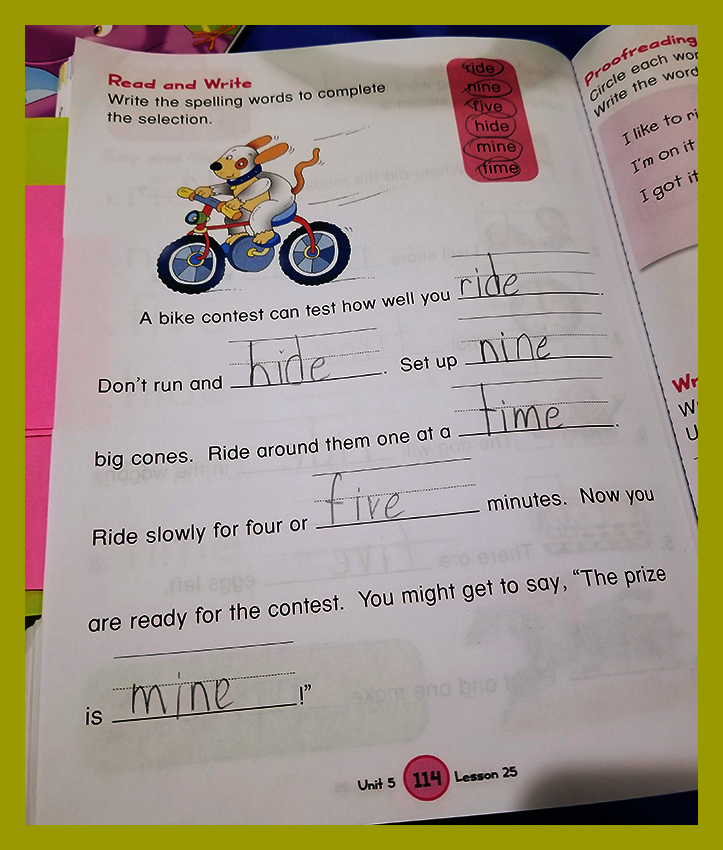 Read and Write
Write the spelling words to complete
the selection.
ride
nine
five
hide
mine
time
A bike contest can test how well you ride.
Don't run and hide. Set up nine
big cones. Ride around them one at a time.
Ride slowly for four or five minutes. Now you
are ready for the contest. You might get to say, “The prize
is mine!”
Unit 5 114 Lesson 25
Proofreading
Circle each
Write the
I like to
I'm on it
I got it